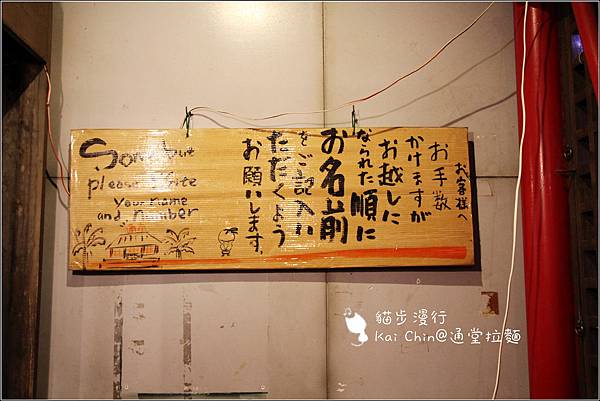 お客様へ
お手数
かけますが
お越しに
なられた順に
お名前
をご記入い
ただくよう
お願いします。
Sorry but
please write
your name
and number
貓步漫行
Kai Chin@通堂拉麵